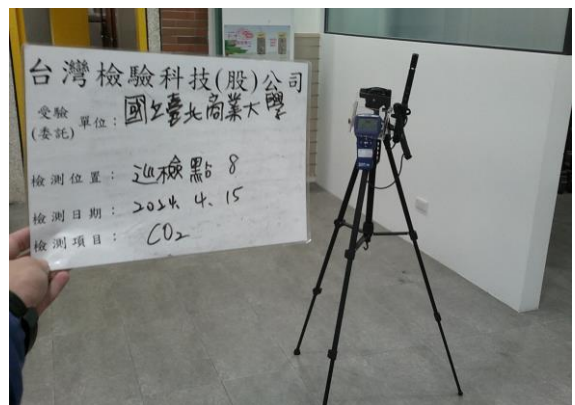 台灣檢驗科技(股)公司
受驗
(委託)
單位：國立臺北商業大學
檢測位置：巡檢點 8
檢測日期：2024. 4. 15
檢測項目：CO₂